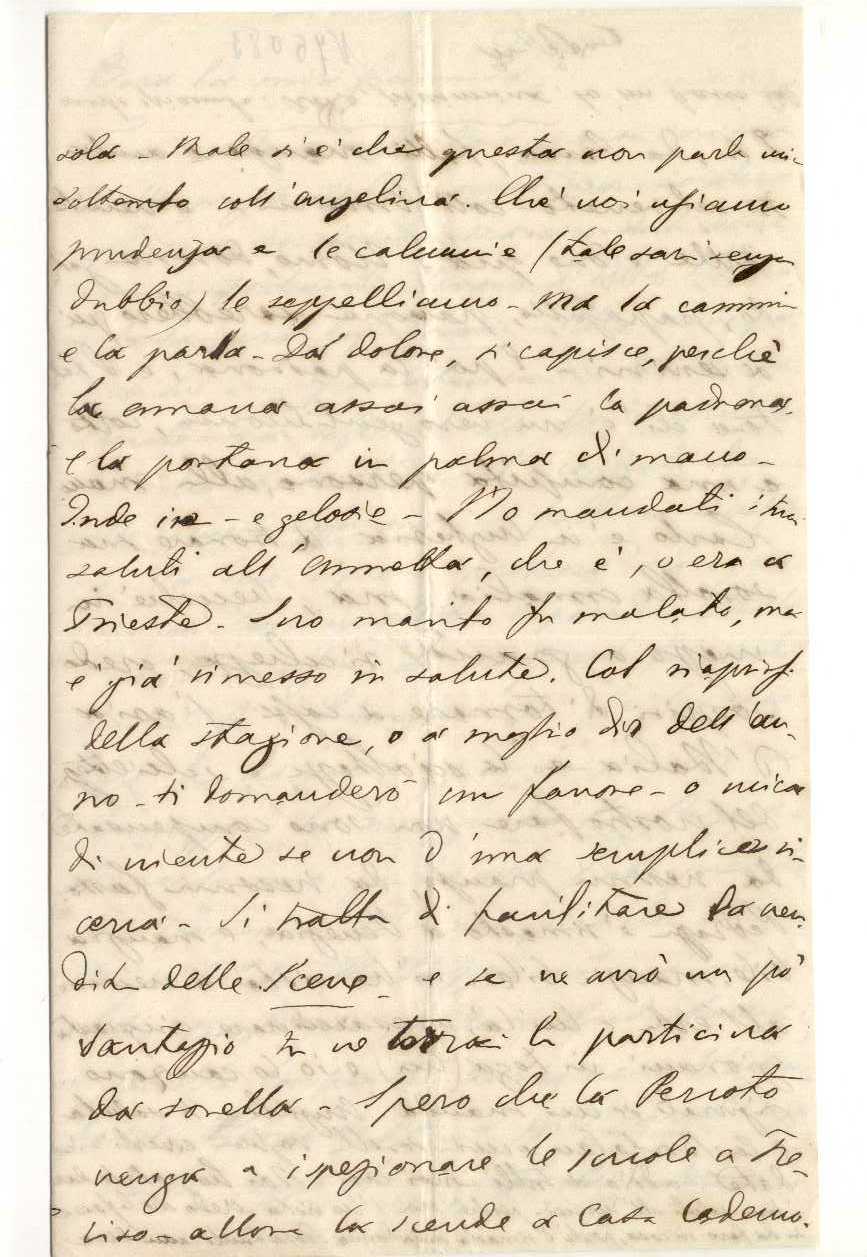 sola - Male si è che questa non parla mi-
soltanto coll'angelina. Chè noi usiamo
prudenza e le calunnie (tale sarà senza
dubbio) le seppelliamo - Ma la cammin
e la parla - Dà dolore, si capisce, perchè
la amava assai assai la padrona,
e la portava in palma di mano -
Inde ire - e gelosie - Ho mandati i tuoi
saluti all'Annetta, che è, o era a
Trieste - Suo marito fu malato, ma
è già rimesso in salute. Col riaprirsi
della stagione, o a meglio dir dell'an-
no - ti domanderò un favore - o mica
di niente se non d'una semplice
cerca - Si tratta di facilitare la ven-
dita delle Scene - e se ne avrò un pò
vantaggio tu ne torrai la particina
da sorella - Spero che la Perroto
venga a ispezionare le scuole a Tre-
viso - allora la scende a Casa Codemo.